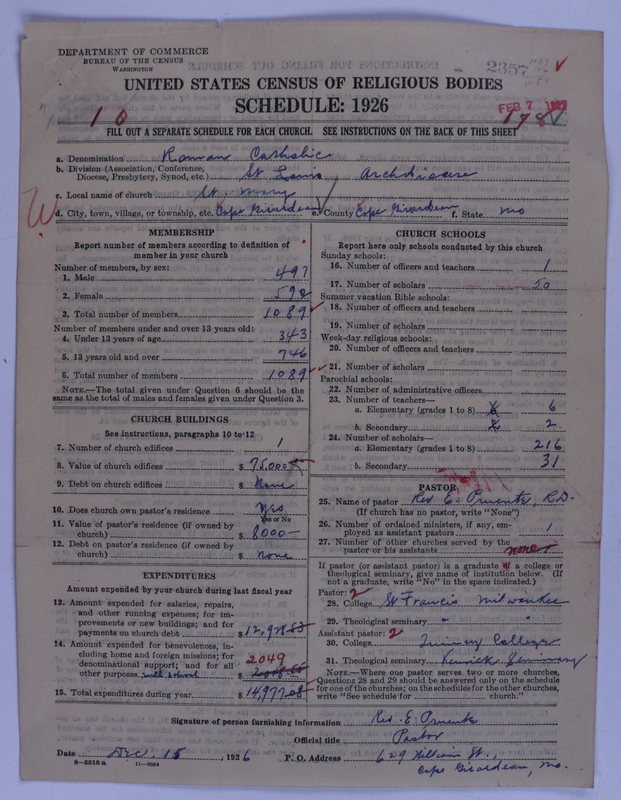 DEPARTMENT OF COMMERCE
BUREAU OF THE CENSUS
WASHINGTON
2357
UNITED STATES CENSUS OF RELIGIOUS BODIES
SCHEDULE: 1926
FEB 7
1 0
178
FILL OUT A SEPARATE SCHEDULE FOR EACH CHURCH. SEE INSTRUCTIONS ON THE BACK OF THIS SHEET
a. Denomination Roman Catholic
b. Division (Association, Conference, Diocese, Presbytery, Synod, etc.) St Louis Archdiocese
c. Local name of church St Mary
d. City, town, village, or township, etc. Cape Girardeau e. County Cape Girardeau f. State Mo
MEMBERSHIP
Report number of members according to definition of member in your church
Number of members, by sex:
1. Male 497
2. Female 592
3. Total number of members 1089
Number of members under and over 13 years old:
4. Under 13 years of age 343
5. 13 years old and over 746
6. Total number of members 1089
NOTE.—The total given under Question 6 should be the same as the total of males and females given under Question 3.
CHURCH BUILDINGS
See instructions, paragraphs 10 to 12
7. Number of church edifices 1
8. Value of church edifices $ 75,000
9. Debt on church edifices $ None
10. Does church own pastor's residence Yes
Yes or No
11. Value of pastor's residence (if owned by church) $ 8000
12. Debt on pastor's residence (if owned by church) $ None
EXPENDITURES
Amount expended by your church during last fiscal year
13. Amount expended for salaries, repairs, and other running expenses; for improvements or new buildings; and for payments on church debt $
14. Amount expended for benevolences, including home and foreign missions; for denominational support; and for all other purposes 2049
15. Total expenditures during year $ 14,977.08
CHURCH SCHOOLS
Report here only schools conducted by this church
Sunday schools:
16. Number of officers and teachers 1
17. Number of scholars 50
Summer vacation Bible schools:
18. Number of officers and teachers
19. Number of scholars
Week-day religious schools:
20. Number of officers and teachers
21. Number of scholars
Parochial schools:
22. Number of administrative officers
23. Number of teachers—
a. Elementary (grades 1 to 8) 6
b. Secondary 2
24. Number of scholars—
a. Elementary (grades 1 to 8) 216
b. Secondary 31
PASTOR
25. Name of pastor Rev E. Pruente, R.D.
(If church has no pastor, write "None")
26. Number of ordained ministers, if any, employed as assistant pastors 1
27. Number of other churches served by the pastor or his assistants none
If pastor (or assistant pastor) is a graduate of a college or theological seminary, give name of institution below. (If not a graduate, write "No" in the space indicated.)
Pastor: 2
28. College St Francis Milwaukee
29. Theological seminary " "
Assistant pastor: 2
30. College College
31. Theological seminary Kenrick Seminary
NOTE.—Where one pastor serves two or more churches, Questions 28 and 29 should be answered only on the schedule for one of the churches; on the schedules for the other churches, write "See schedule for church."
Signature of person furnishing information Rev. E. Pruente
Official title Pastor
Date Dec. 15, 1926 P. O. Address 629 William St.,
Cape Girardeau, Mo.
8—5518a 11—9024